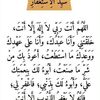 سيد الاستغفار
اللَّهُمَّ أَنْتَ رَبِّي لَا إِلَهَ إِلَّا أَنْتَ،
خَلَقْتَنِي وَأَنَا عَبْدُكَ، وَأَنَا عَلَى عَهْدِكَ
وَوَعْدِكَ مَا اسْتَطَعْتُ، أَعُوذُ بِكَ مِنْ
شَرِّ مَا صَنَعْتُ، أَبُوءُ لَكَ بِنِعْمَتِكَ
عَلَيَّ، وَأَبُوءُ لَكَ بِذَنْبِي، فَاغْفِرْ لِي،
فَإِنَّهُ لَا يَغْفِرُ الذُّنُوبَ إِلَّا أَنْتَ